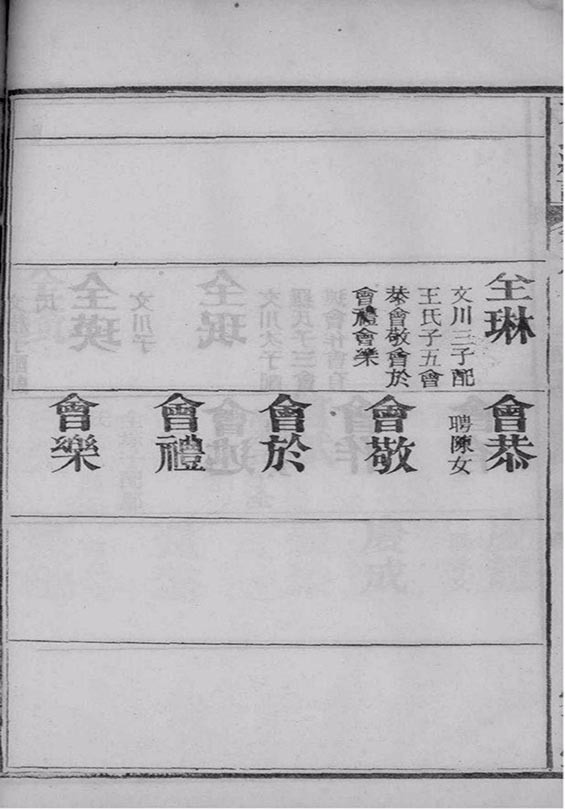 全琳
文川三子配
王氏子五會
恭會敬會於
會禮會樂
會恭
聘陳女
會敬
會於
會禮
會樂